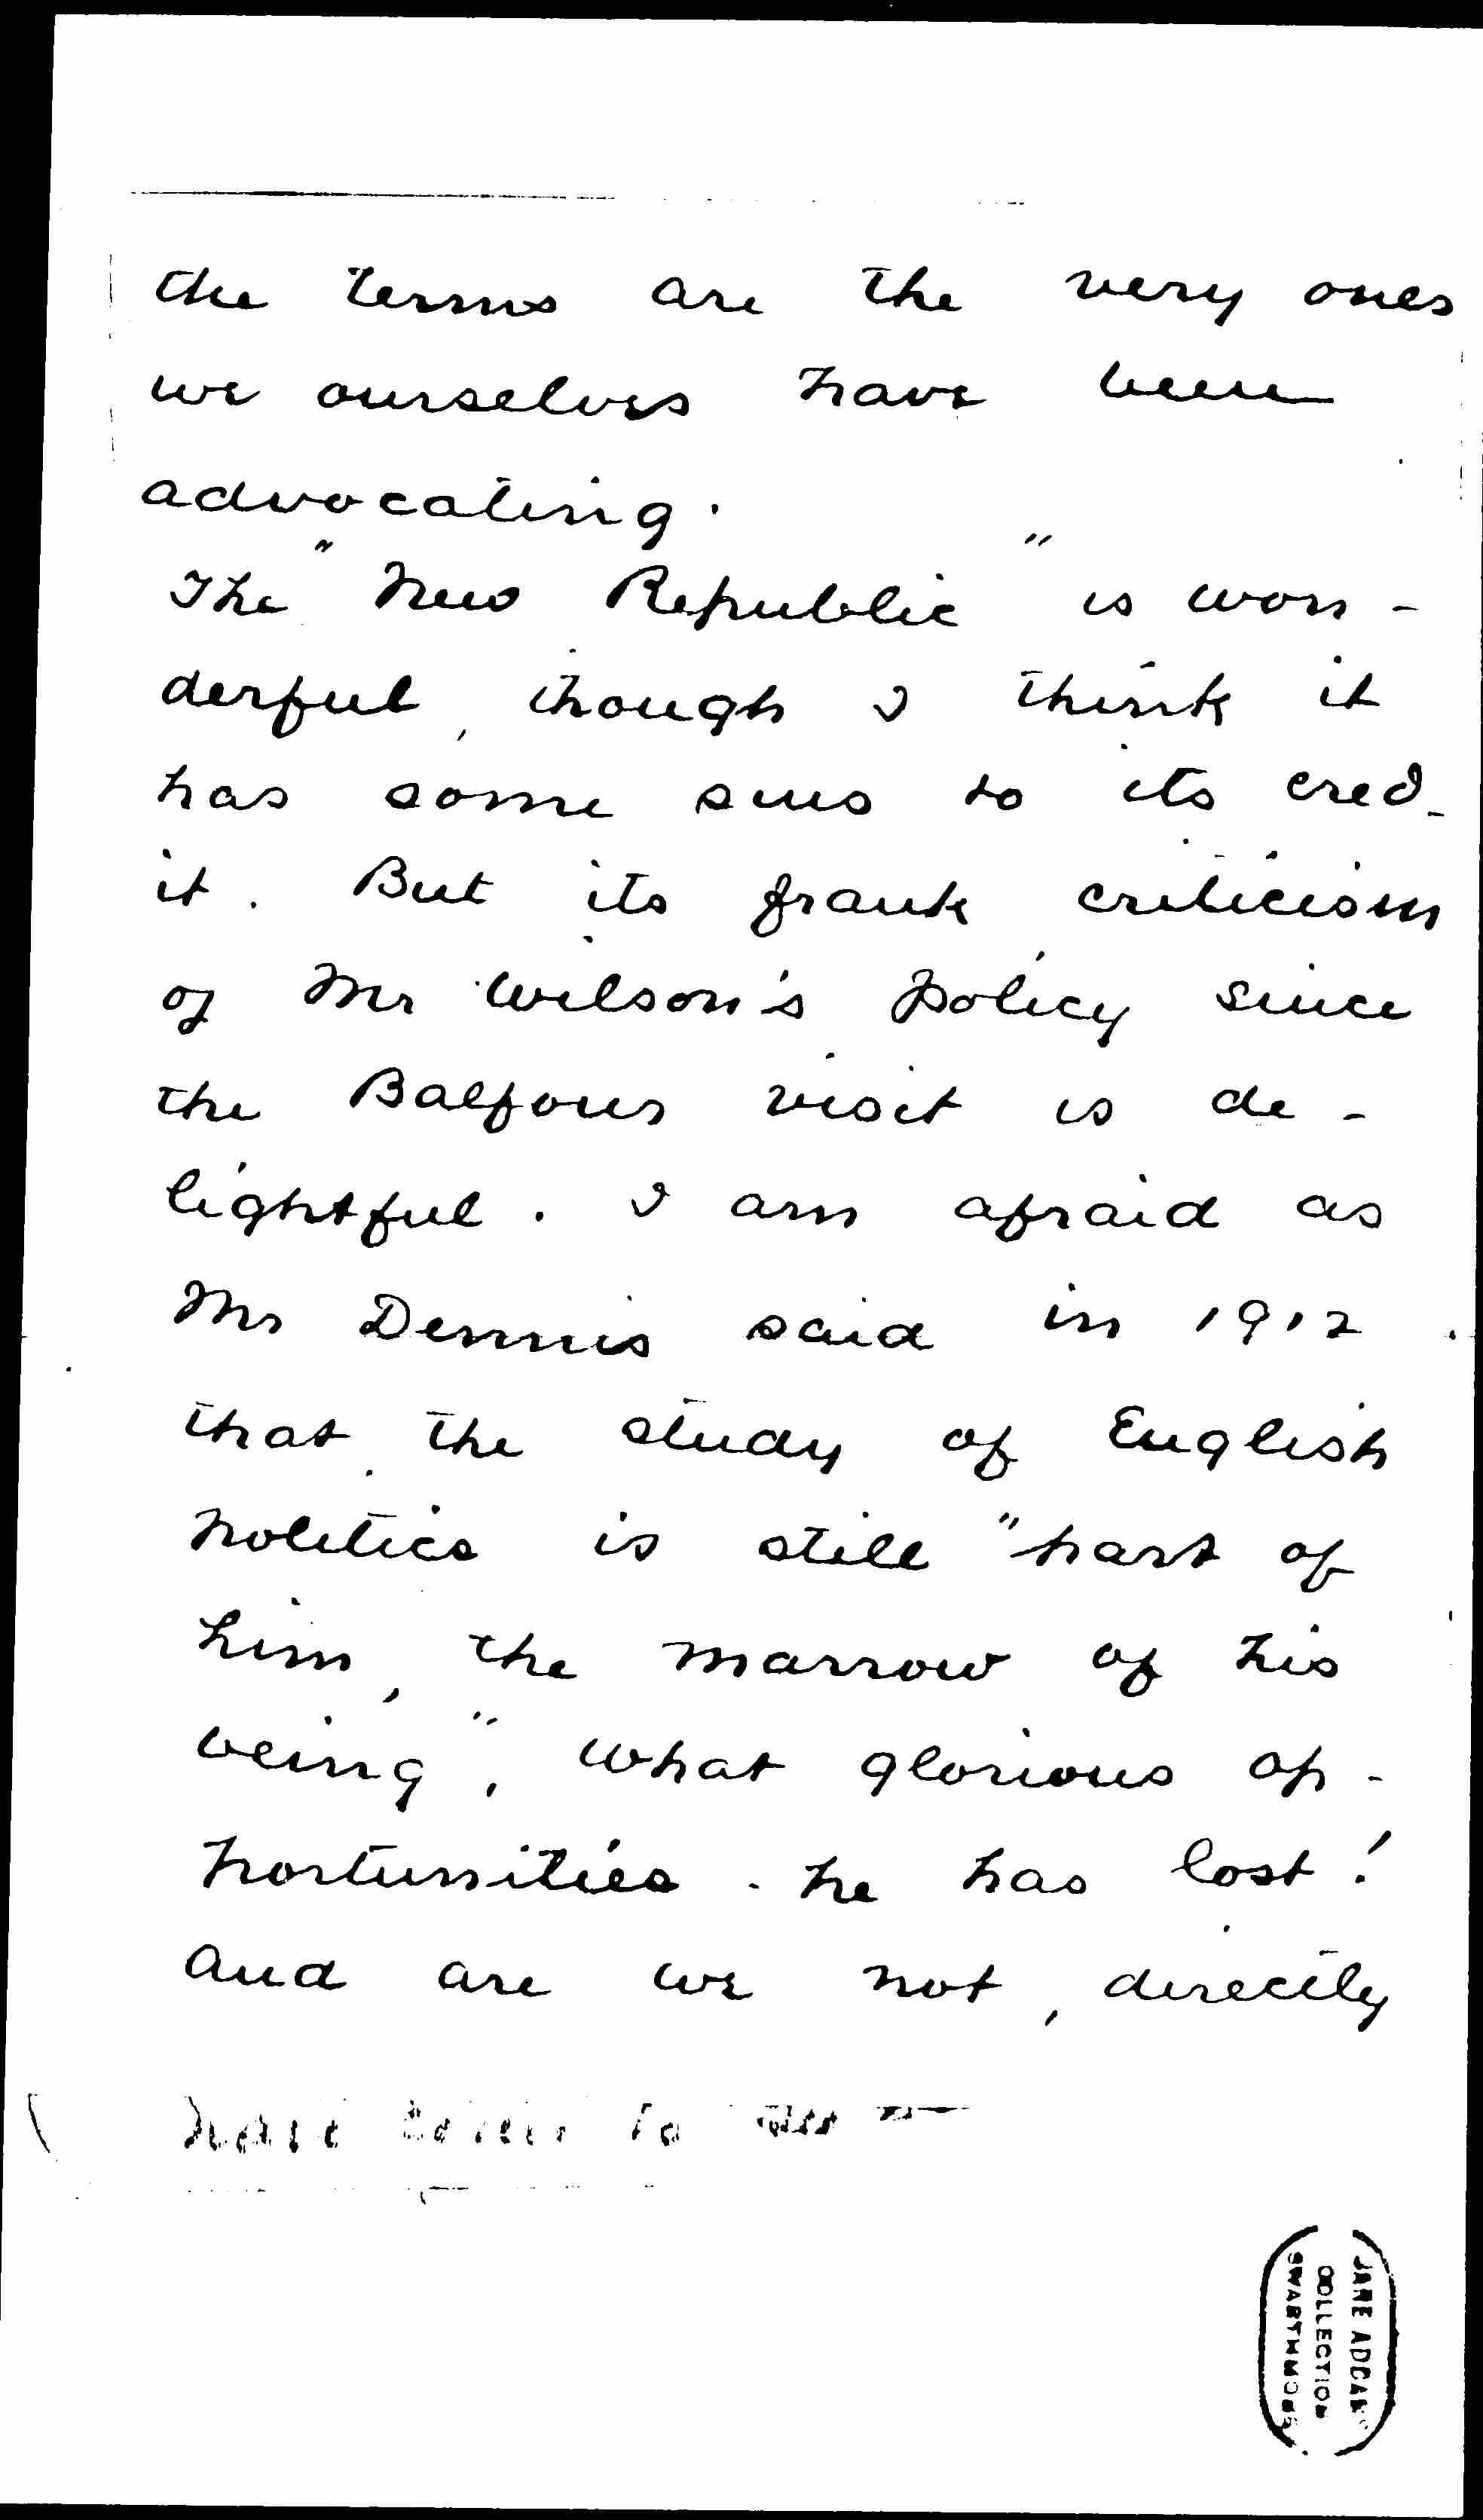 the terms are the very ones
we ourselves have been
advocating.
The "New Republic" is won-
derful, though I think it
has some sins to its cred-
it. But its frank criticism
of Mr Wilson's policy since
the Balfour visit is de-
lightful. I am afraid as
Mr Dennis said in 1912
that the study of English
politics is still "part of
him, the marrow of his
being", what glorious op-
portunities he has lost!
And are we not, directly
have to
JANE ADDAMS
COLLECTION
SWARTHMORE